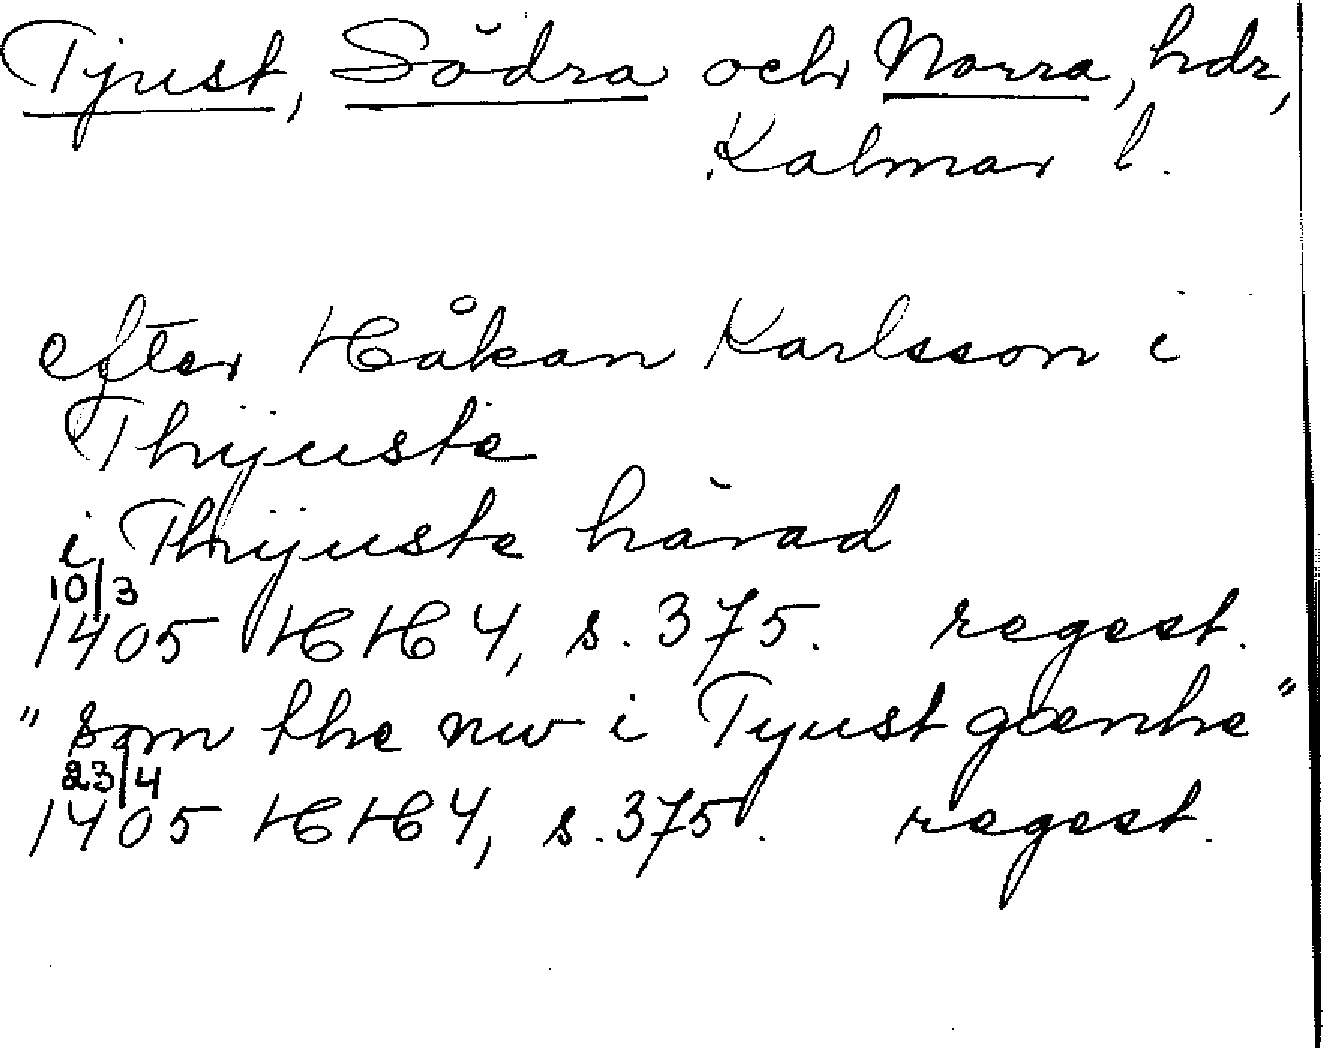 Tjust, Södra och Norra, hdr,
Kalmar l.
efter Håkan Karlsson i
Thijuste
i Thijuste härad
10/3
1405 HH 4, s. 375. regest.
"som the nw i Tyust gænhe"
23/4
1405 HH 4, s. 375. regest.